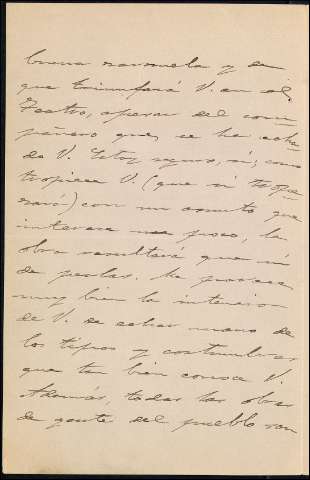 buena zarzuela y de
que triunfará V. en el
Teatro, apesar del com
pañero que se ha echa
do V. Estoy seguro, sí; como
tropiece V. (que sí trope
zará) con un asunto que
interese un poco, la
obra resultará que ni
de perlas. Me parece
muy bien la intencion
de V. de echar mano de
los tipos y costumbres
que tan bien conoce V.
Además, todas las obras
de gente del pueblo son